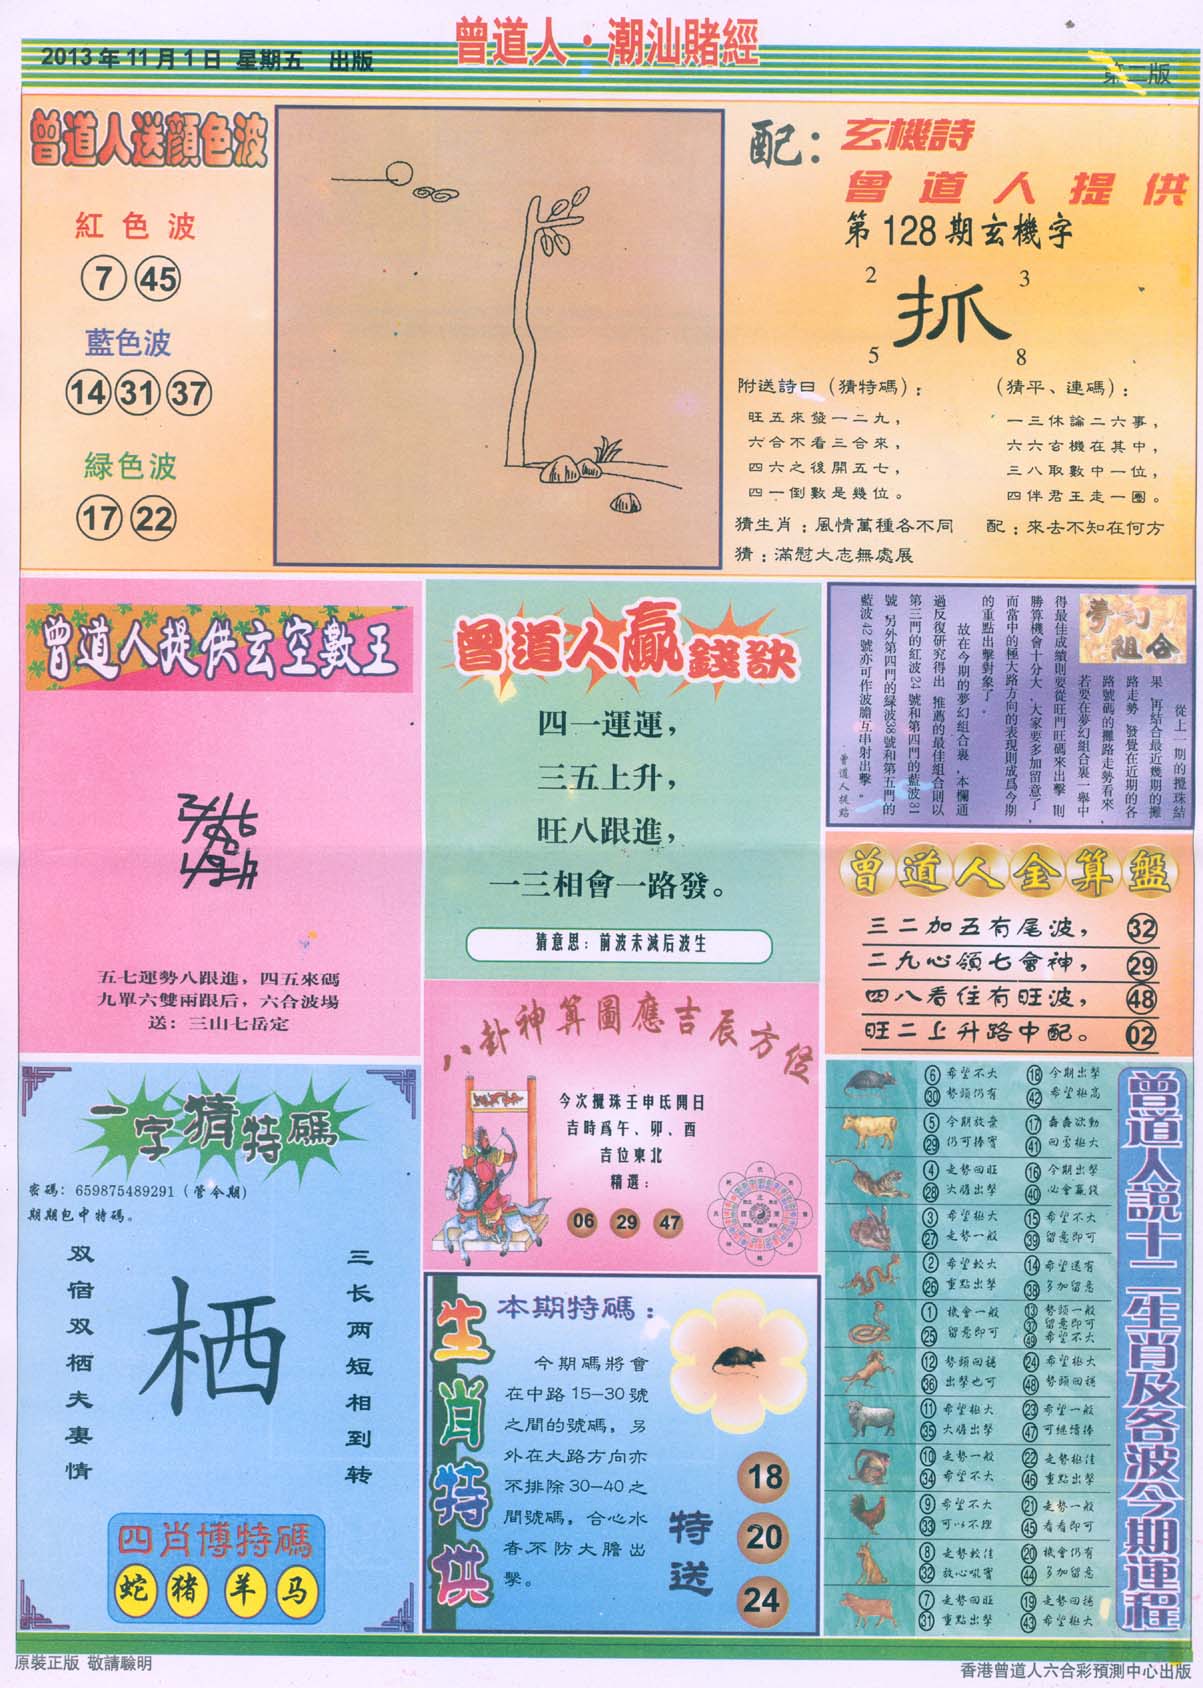 曾道人·潮汕賭經
2013年11月1日 星期五 出版
第二版
曾道人送顏色波
紅色波
7 45
藍色波
14 31 37
緑色波
17 22
配：玄機詩
曾道人提供
第128期玄機字
2 3
抓
5 8
附送詩日（猜特碼）：
旺五來發一二九，
六合不看三合來，
四六之後開五七，
四一倒數是幾位。
（猜平、連碼）：
一三休論二六事，
六六玄機在其中，
三八取數中一位，
四伴君王走一圈。
猜生肖：風情萬種各不同 配：來去不知在何方
猜：滿慰大志無處展
曾道人提供玄空數王
五七運勢八跟進，四五來碼
九單六雙兩跟后，六合波場
送：三山七岳定
曾道人贏錢訣
四一運運，
三五上升，
旺八跟進，
一三相會一路發。
猜意思：前波未減后波生
夢幻組合
從上一期的攪珠結
果，再結合最近幾期的攤
路走勢，發覺在近期的各
路號碼的攤路走勢看來，
若要在夢幻組合裏一舉中
得最佳成績則要從旺門旺碼來出擊，則
勝算機會十分大，大家要多加留意了，
而當中的極大路方向的表現則成爲今期
的重點出擊對象了。
故在今期的夢幻組合裏，本欄通
過反復研究得出，推薦的最佳組合則以
第三門的紅波24號和第四門的藍波31
號，另外第四門的緑波38號和第五門的
藍波42號亦可作波膽互串射出擊。
曾道人提點
曾道人金算盤
三二加五有尾波， 32
二九心領七會神， 29
四八看住有旺波， 48
旺二上升路中配。 02
八卦神算圖應吉辰方從
今次攪珠壬申氐開日
吉時爲午、卯、酉
吉位東北
精選：
06 29 47
一字猜特碼
密碼：659875489291（管令期）
期期包中特碼。
双宿双栖夫妻情
栖
三长两短相到转
四肖博特碼
蛇 猪 羊 马
生肖特供
本期特碼：
今期碼將會
在中路15—30號
之間的號碼，另
外在大路方向亦
不排除30—40之
間號碼，合心水
者不防大膽出
擊。
特送
18
20
24
曾道人説十二生肖及各波今期運程
6 希望不大 18 今期出擊
30 勢頭仍有 42 希望極高
5 今期放棄 17 蠢蠢欲動
29 仍可捧實 41 回勇極大
4 走勢回旺 16 今期出擊
28 大膽出擊 40 必會贏錢
3 希望極大 15 希望不大
27 走勢一般 39 留意即可
2 希望較大 14 希望還有
26 重點出擊 38 多加留意
1 機會一般 13 勢頭一般
37 留意即可
25 留意即可 49 希望不大
12 勢頭回穩 24 希望極大
36 出擊也可 48 勢頭回穩
11 希望極大 23 希望一般
35 大膽出擊 47 可繼續捧
10 走勢一般 22 走勢極佳
34 希望不大 46 重點出擊
9 希望不大 21 走勢一般
33 可以不理 45 看看即可
8 走勢較佳 20 機會仍有
32 放心吼實 44 多加留意
7 走勢回旺 19 走勢回穩
31 重點出擊 43 希望極大
原裝正版 敬請驗明
香港曾道人六合彩預測中心出版